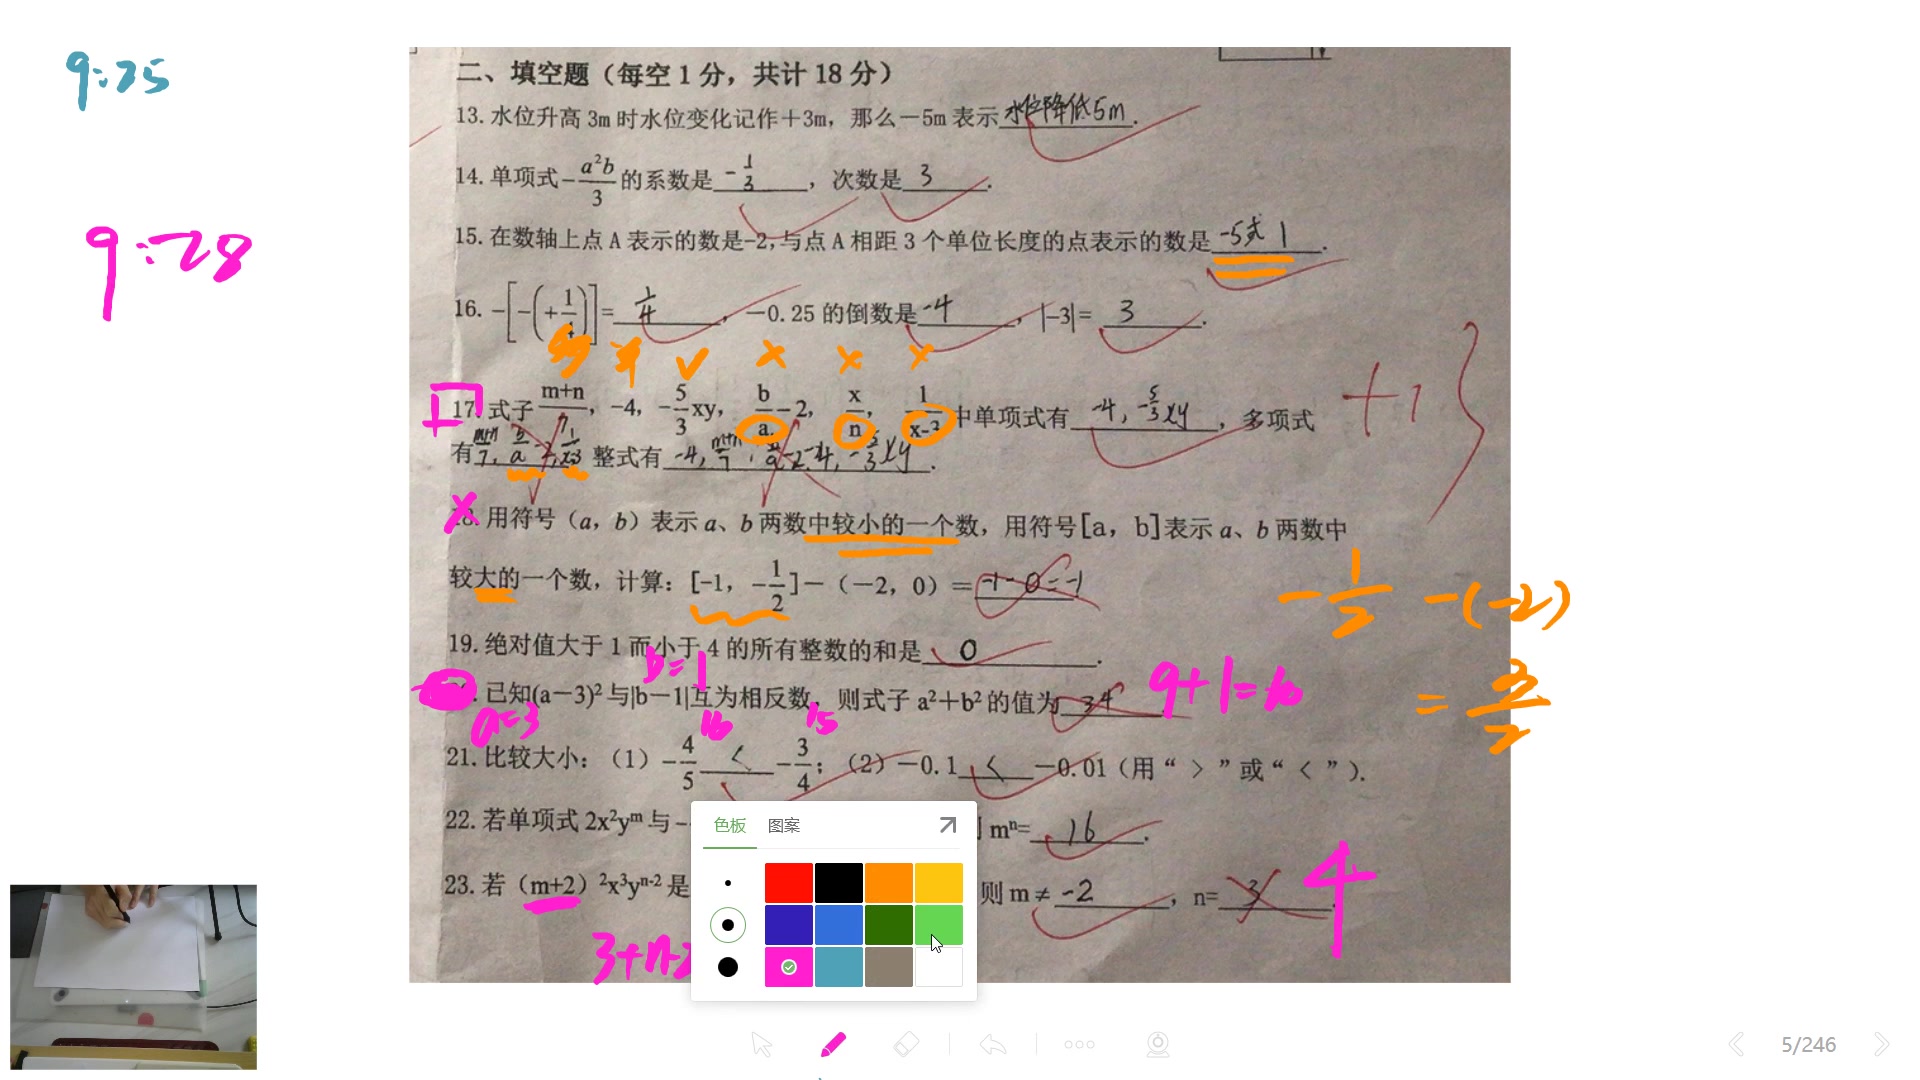 9:25
9:28
二、填空题（每空1分，共计18分）
13.水位升高3m时水位变化记作＋3m，那么－5m表示水位降低5m.
14.单项式-a²b/3的系数是-1/3，次数是3.
15.在数轴上点A表示的数是-2,与点A相距3个单位长度的点表示的数是-5或1.
16.-[-(+1/4)]=1/4，－0.25的倒数是-4，|-3|=3.
17.式子m+n/7，-4，-5/3xy，b/a-2，x/n，1/x-3中单项式有-4,-5/3xy，多项式
+1
有m+n/7,b/a-2,1/x-3 整式有-4,m+n/7,b/a-2,-4,-5/3xy.
18.用符号（a，b）表示a、b两数中较小的一个数，用符号[a，b]表示a、b两数中
较大的一个数，计算：[-1，-1/2]－（－2，0）＝-1-0=-1
-1/2-(-2)
19.绝对值大于1而小于4的所有整数的和是0.
b=1
=3/2
已知(a－3)²与|b－1|互为相反数，则式子a²＋b²的值为34
9+1=10
a=3
16
15
21.比较大小：（1）-4/5<-3/4；（2）－0.1<－0.01（用“＞”或“＜”）.
22.若单项式2x²yᵐ与- mⁿ=16.
23.若（m+2）²x³yⁿ⁻²是 则m≠-2，n=3.
4
3+n-2
色板 图案
5/246